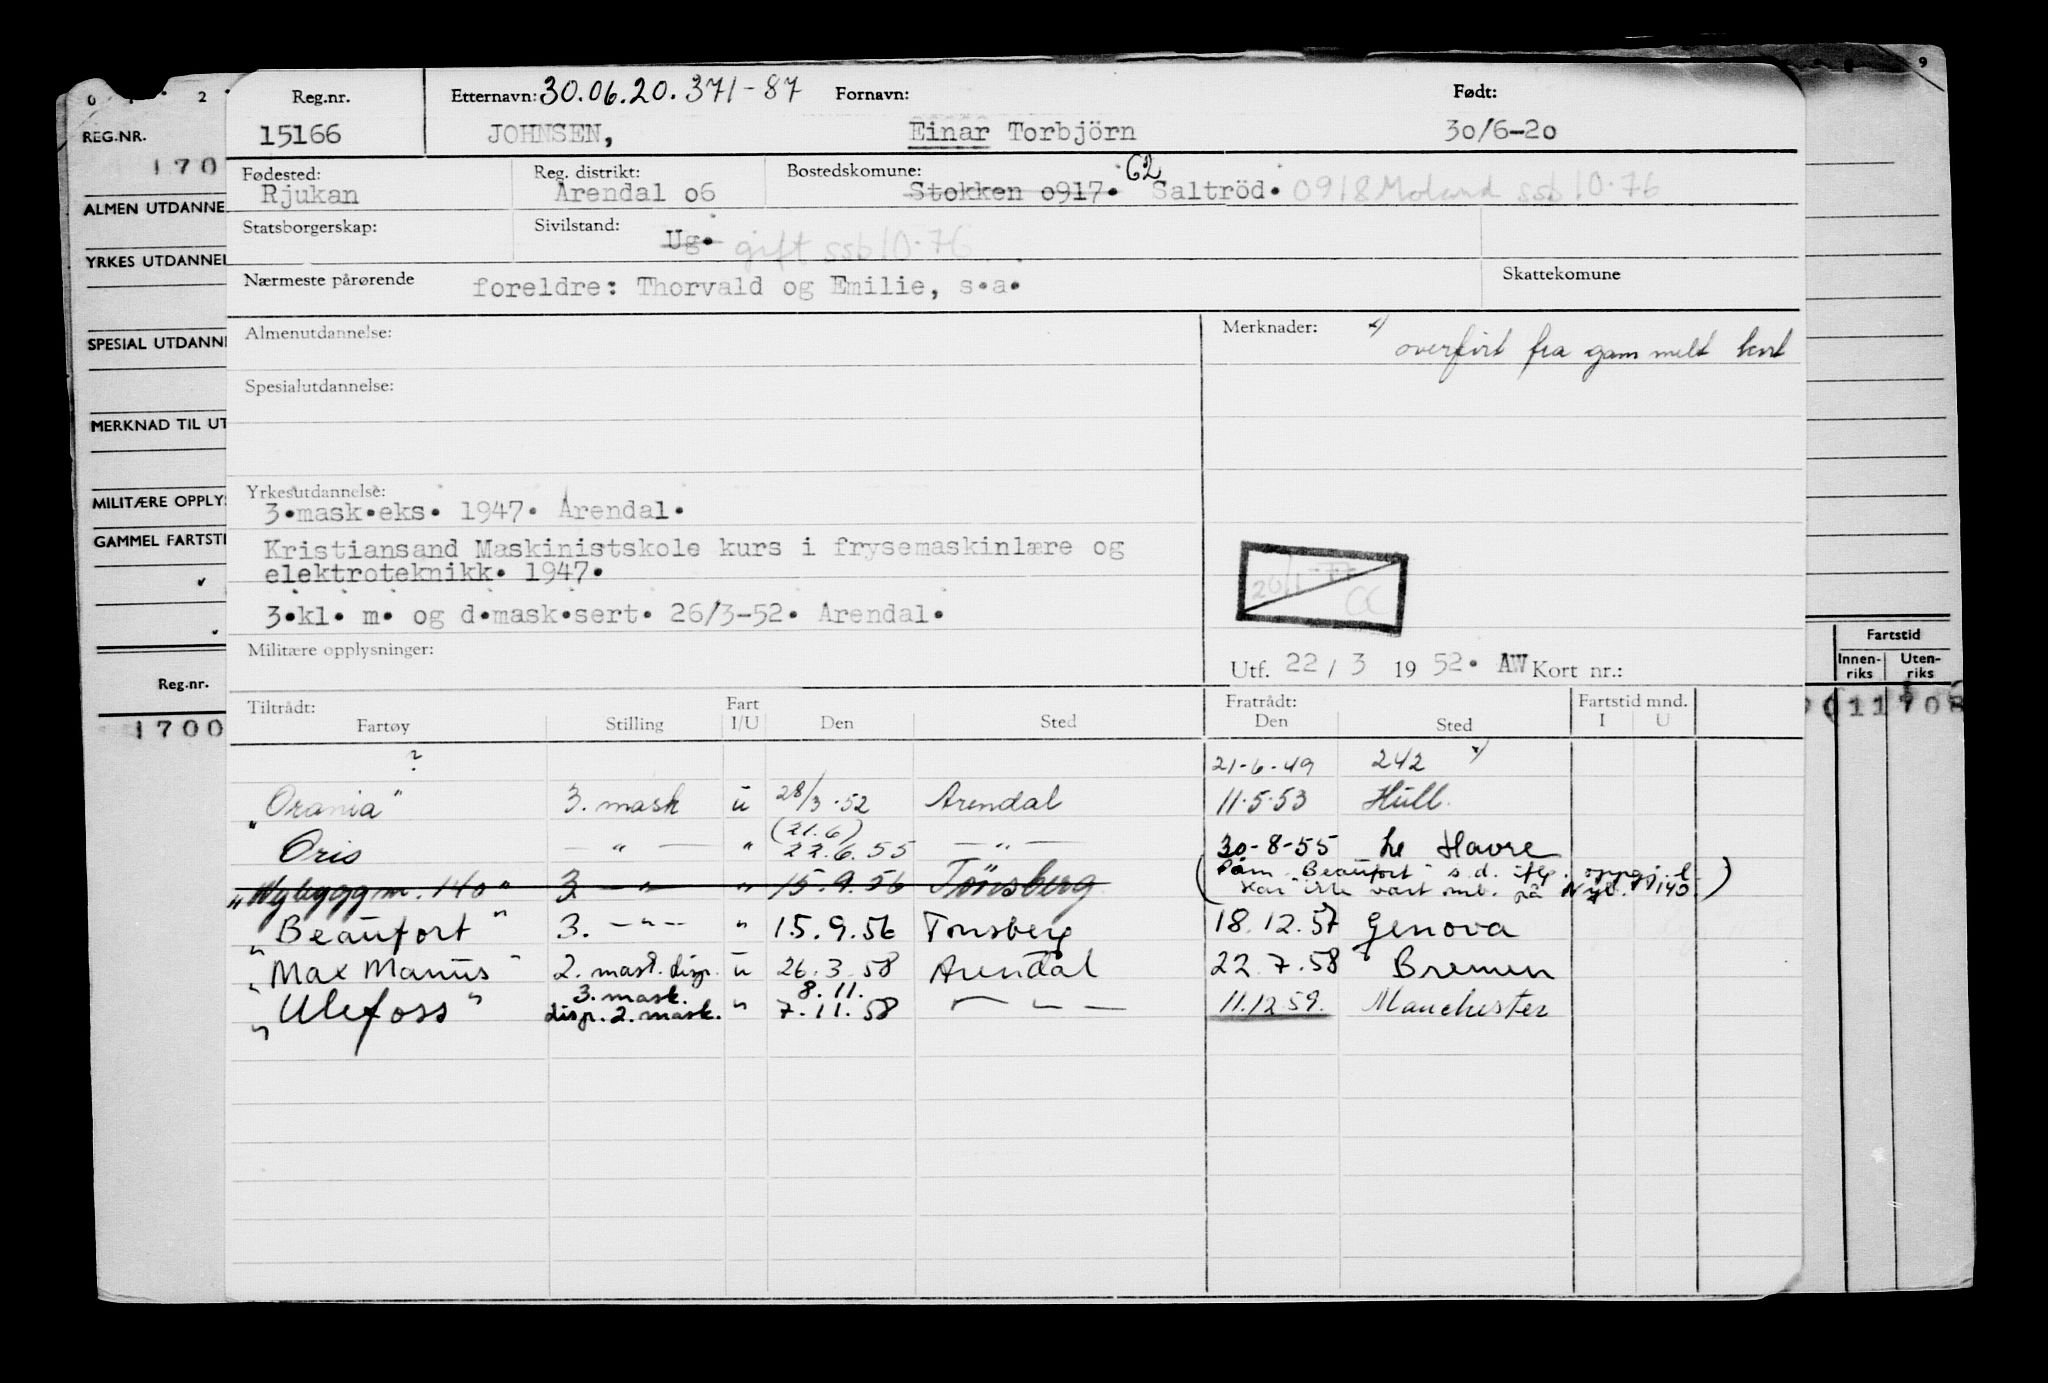 0 1 2 9
REG.NR.
170
ALMEN UTDANNE
YRKES UTDANNEL
SPESIAL UTDANNE
MERKNAD TIL UT
MILITÆRE OPPLYS
GAMMEL FARTSTI
Reg.nr.
1700
Fartstid
Innen-riks Uten-riks
Reg.nr. Etternavn: 30.06.20.371-87 Fornavn: Født:
15166 JOHNSEN, Einar Torbjörn 30/6-20
Fødested: Reg. distrikt: Bostedskomune: 62
Rjukan Arendal o6 Stokken o917. Saltröd. 0918 Moland ssb 10.76
Statsborgerskap: Sivilstand: Ug. gift ssb 10.76
Nærmeste pårørende foreldre: Thorvald og Emilie, s.a. Skattekomune
Almenutdannelse: Merknader: x) overført fra gammelt kort
Spesialutdannelse:
Yrkesutdannelse:
3.mask.eks. 1947. Arendal.
Kristiansand Maskinistskole kurs i frysemaskinlære og
elektroteknikk. 1947.
20/1 -77 CC
3.kl. m. og d.mask.sert. 26/3-52. Arendal.
Militære opplysninger: Utf. 22 / 3 19 52. AW Kort nr.:
Tiltrådt: Fart Fratrådt: Fartstid mnd.
Fartøy Stilling I/U Den Sted Den Sted I U
? 21-6-49 242 x)
"Orania" 3. mask u 28/3.52 Arendal 11.5.53 Hull.
(21.6)
Oris — " — " 22.6.55 — " — 30-8-55 Le Havre
"Nybygg nr. 140" 3 — " — " 15.9.56 Tönsberg (Påm. "Beaufort" s.d. iflg. oppgj.l.
har ikke vært omb. på Nyb. 140.)
"Beaufort" 3. — " — " 15.9.56 Tonsberg 18.12.57 Genova
"Max Manus" 2. mask. disp. u 26.3.58 Arendal 22.7.58 Bremen
3. mask. 8.11.
"Ulefoss" disp. 2. mask. " 7.11.58 — " — 11.12.59. Manchester